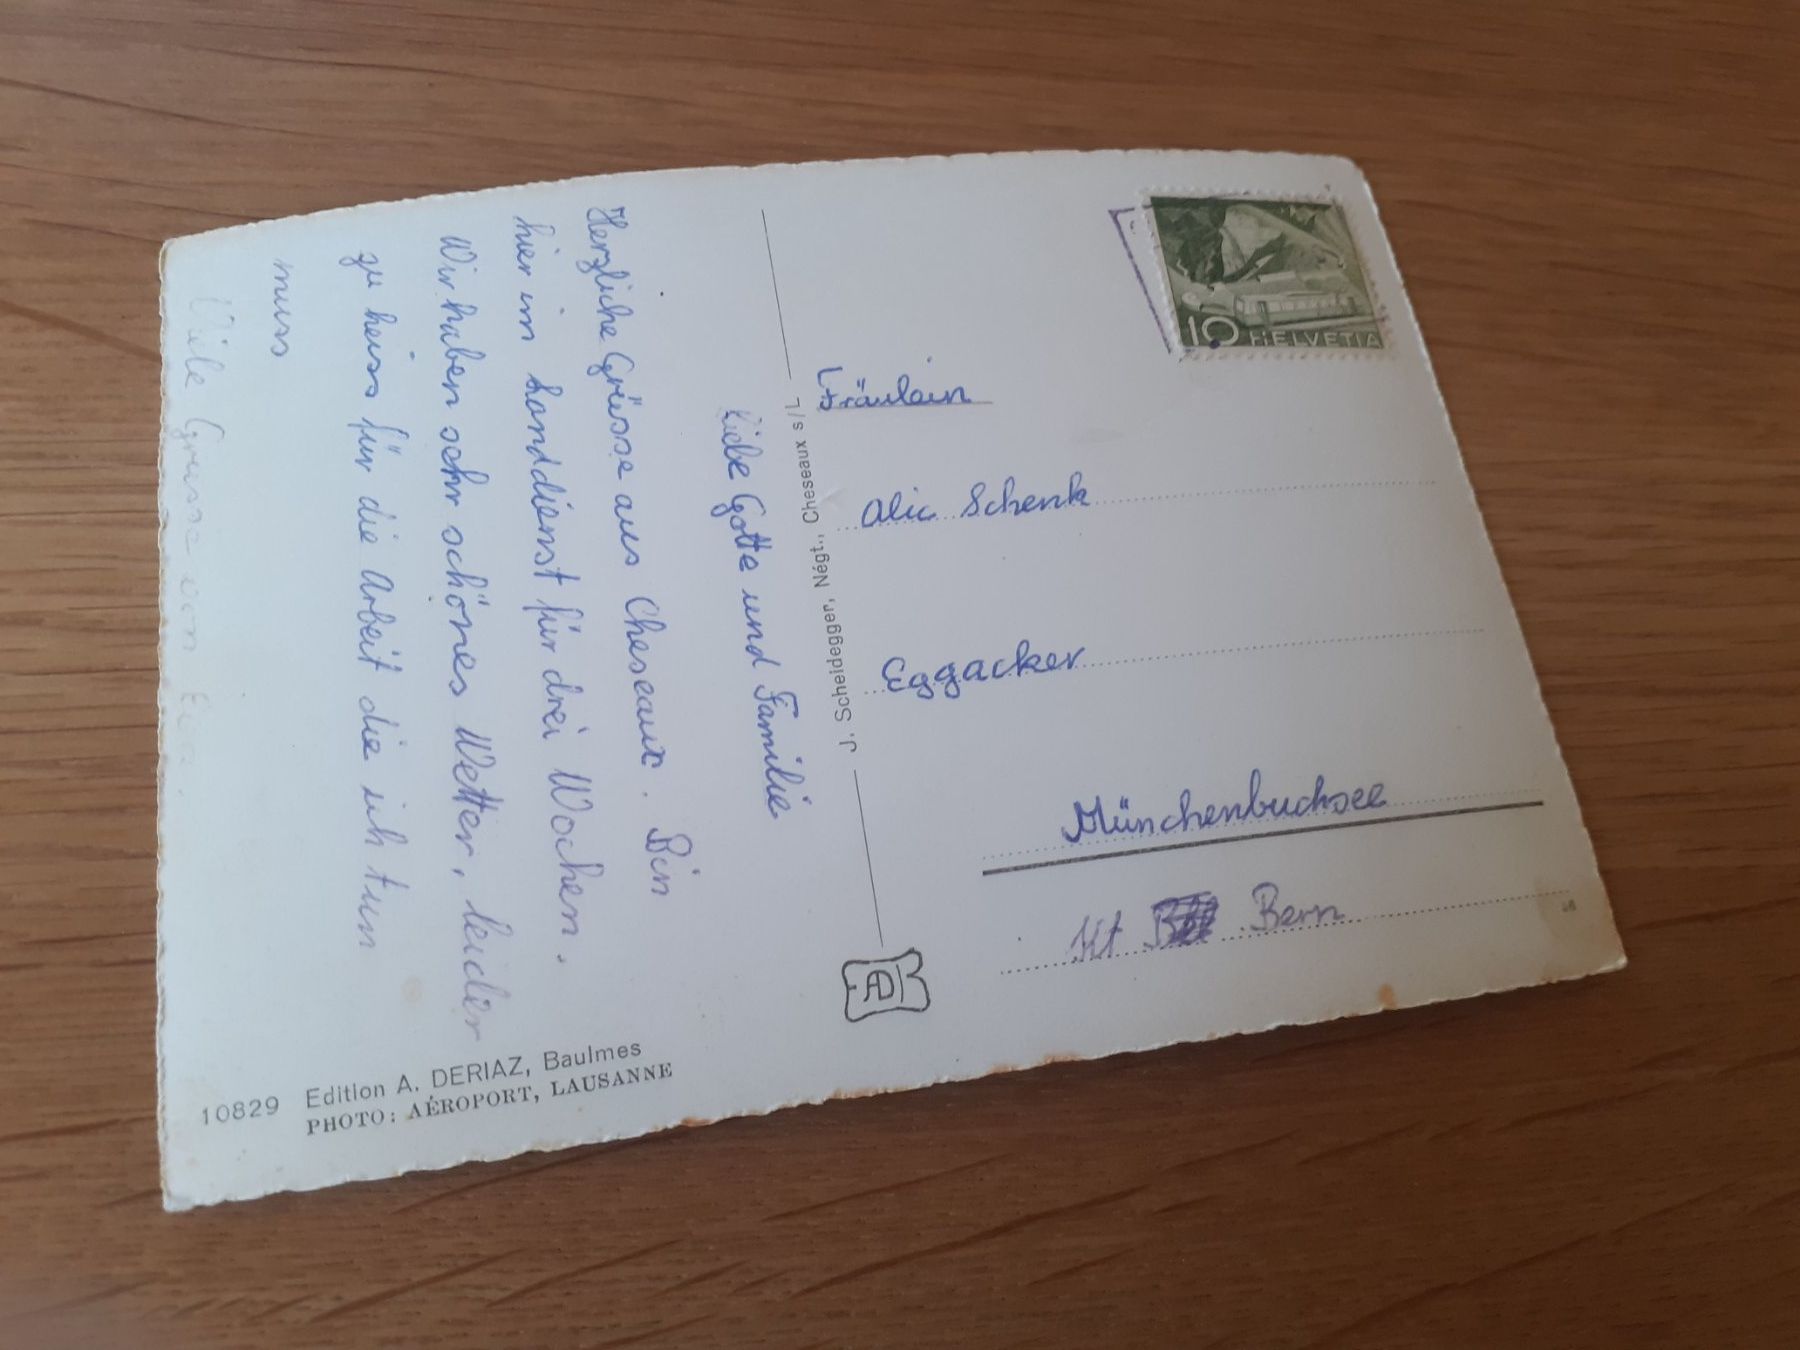 Liebe Gotte und Familie
Herzliche Grüsse aus Cheseaux. Bin
hier im Landdienst für drei Wochen.
Wir haben sehr schönes Wetter, leider
zu heiss für die Arbeit die ich tun
muss
Viele Grüsse von
10829
Edition A. DERIAZ, Baulmes
PHOTO: AÉROPORT, LAUSANNE
J. Scheidegger, Négt., Cheseaux s/L
AD
10 HELVETIA
Fräulein
Alic Schenk
Eggacker
Münchenbuchsee
Kt Bern